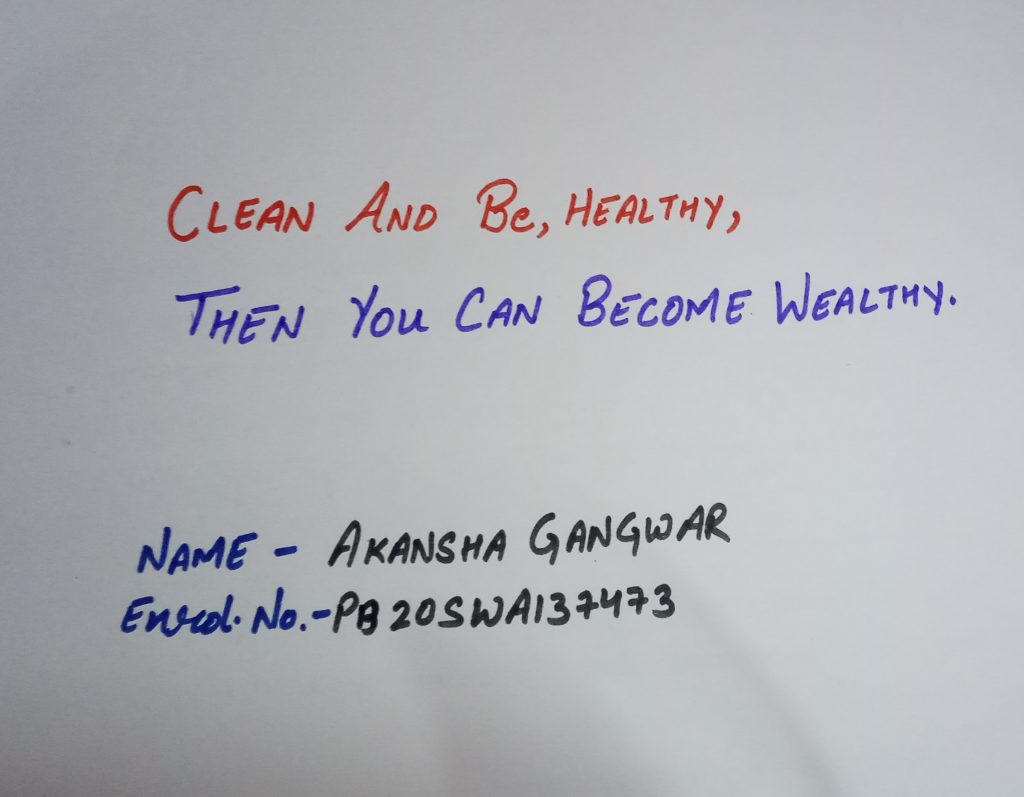 CLEAN AND Be, HEALTHY,
THEN YOU CAN BECOME WEALTHY.
NAME - AKANSHA GANGWAR
Enrol. No.-PB20SWA137473